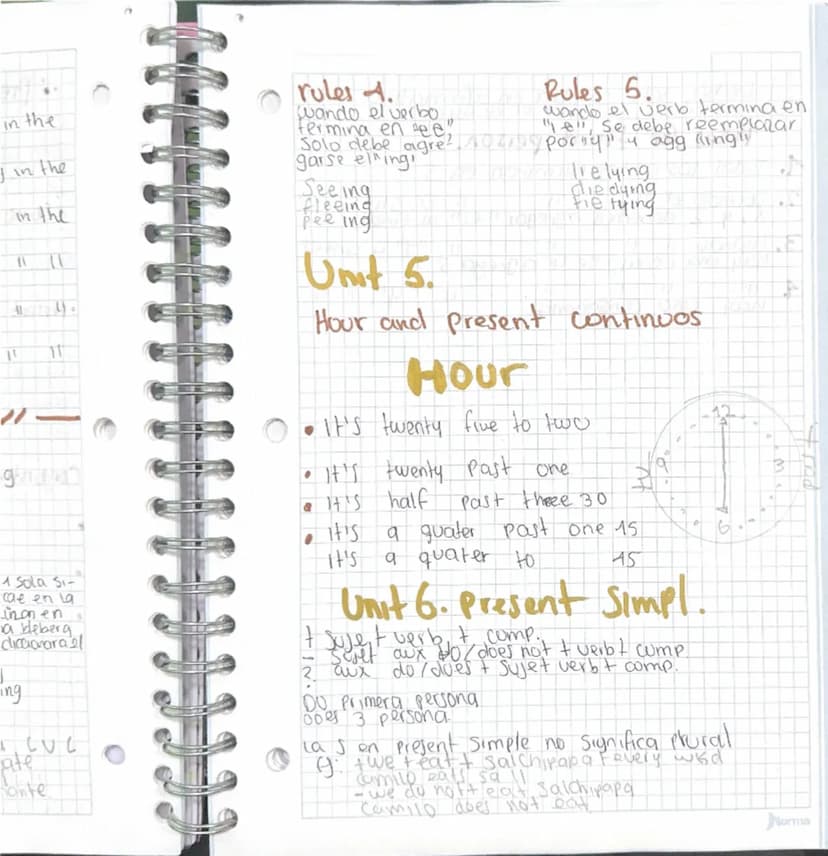 in the
in the
in the
" "
" 4.
" "
g
1 sola si-
cae en la
a debera
ing
CVC
rules 4.
cuando el verbo
termina en "ee"
solo debe agre-
garse el "ing"
Seeing
fleeing
pee ing
Rules 5.
cuando el verb termina en
"ie", se debe reemplazar
por "y" y agg "ing"
lie lying
die dying
tie tying
Unit 5.
Hour and present continuos
Hour
• It's twenty five to two
• It's twenty past one
• It's half past three 30
• it's a quater past one 15
It's a quater to 45
12
9
3
6
to
past
Unit 6. Present Simpl.
+ sujet verb + comp.
- sujet aux do/does not + verb + comp
? aux do/does + sujet verb + comp.
DO primera persona
Does 3 persona
La s en present simple no significa plural
Ej: + we + eat + salchipapa + every
camilo eats sa ll
- we do not + eat salchipapa
Camilo does not eat
Norma